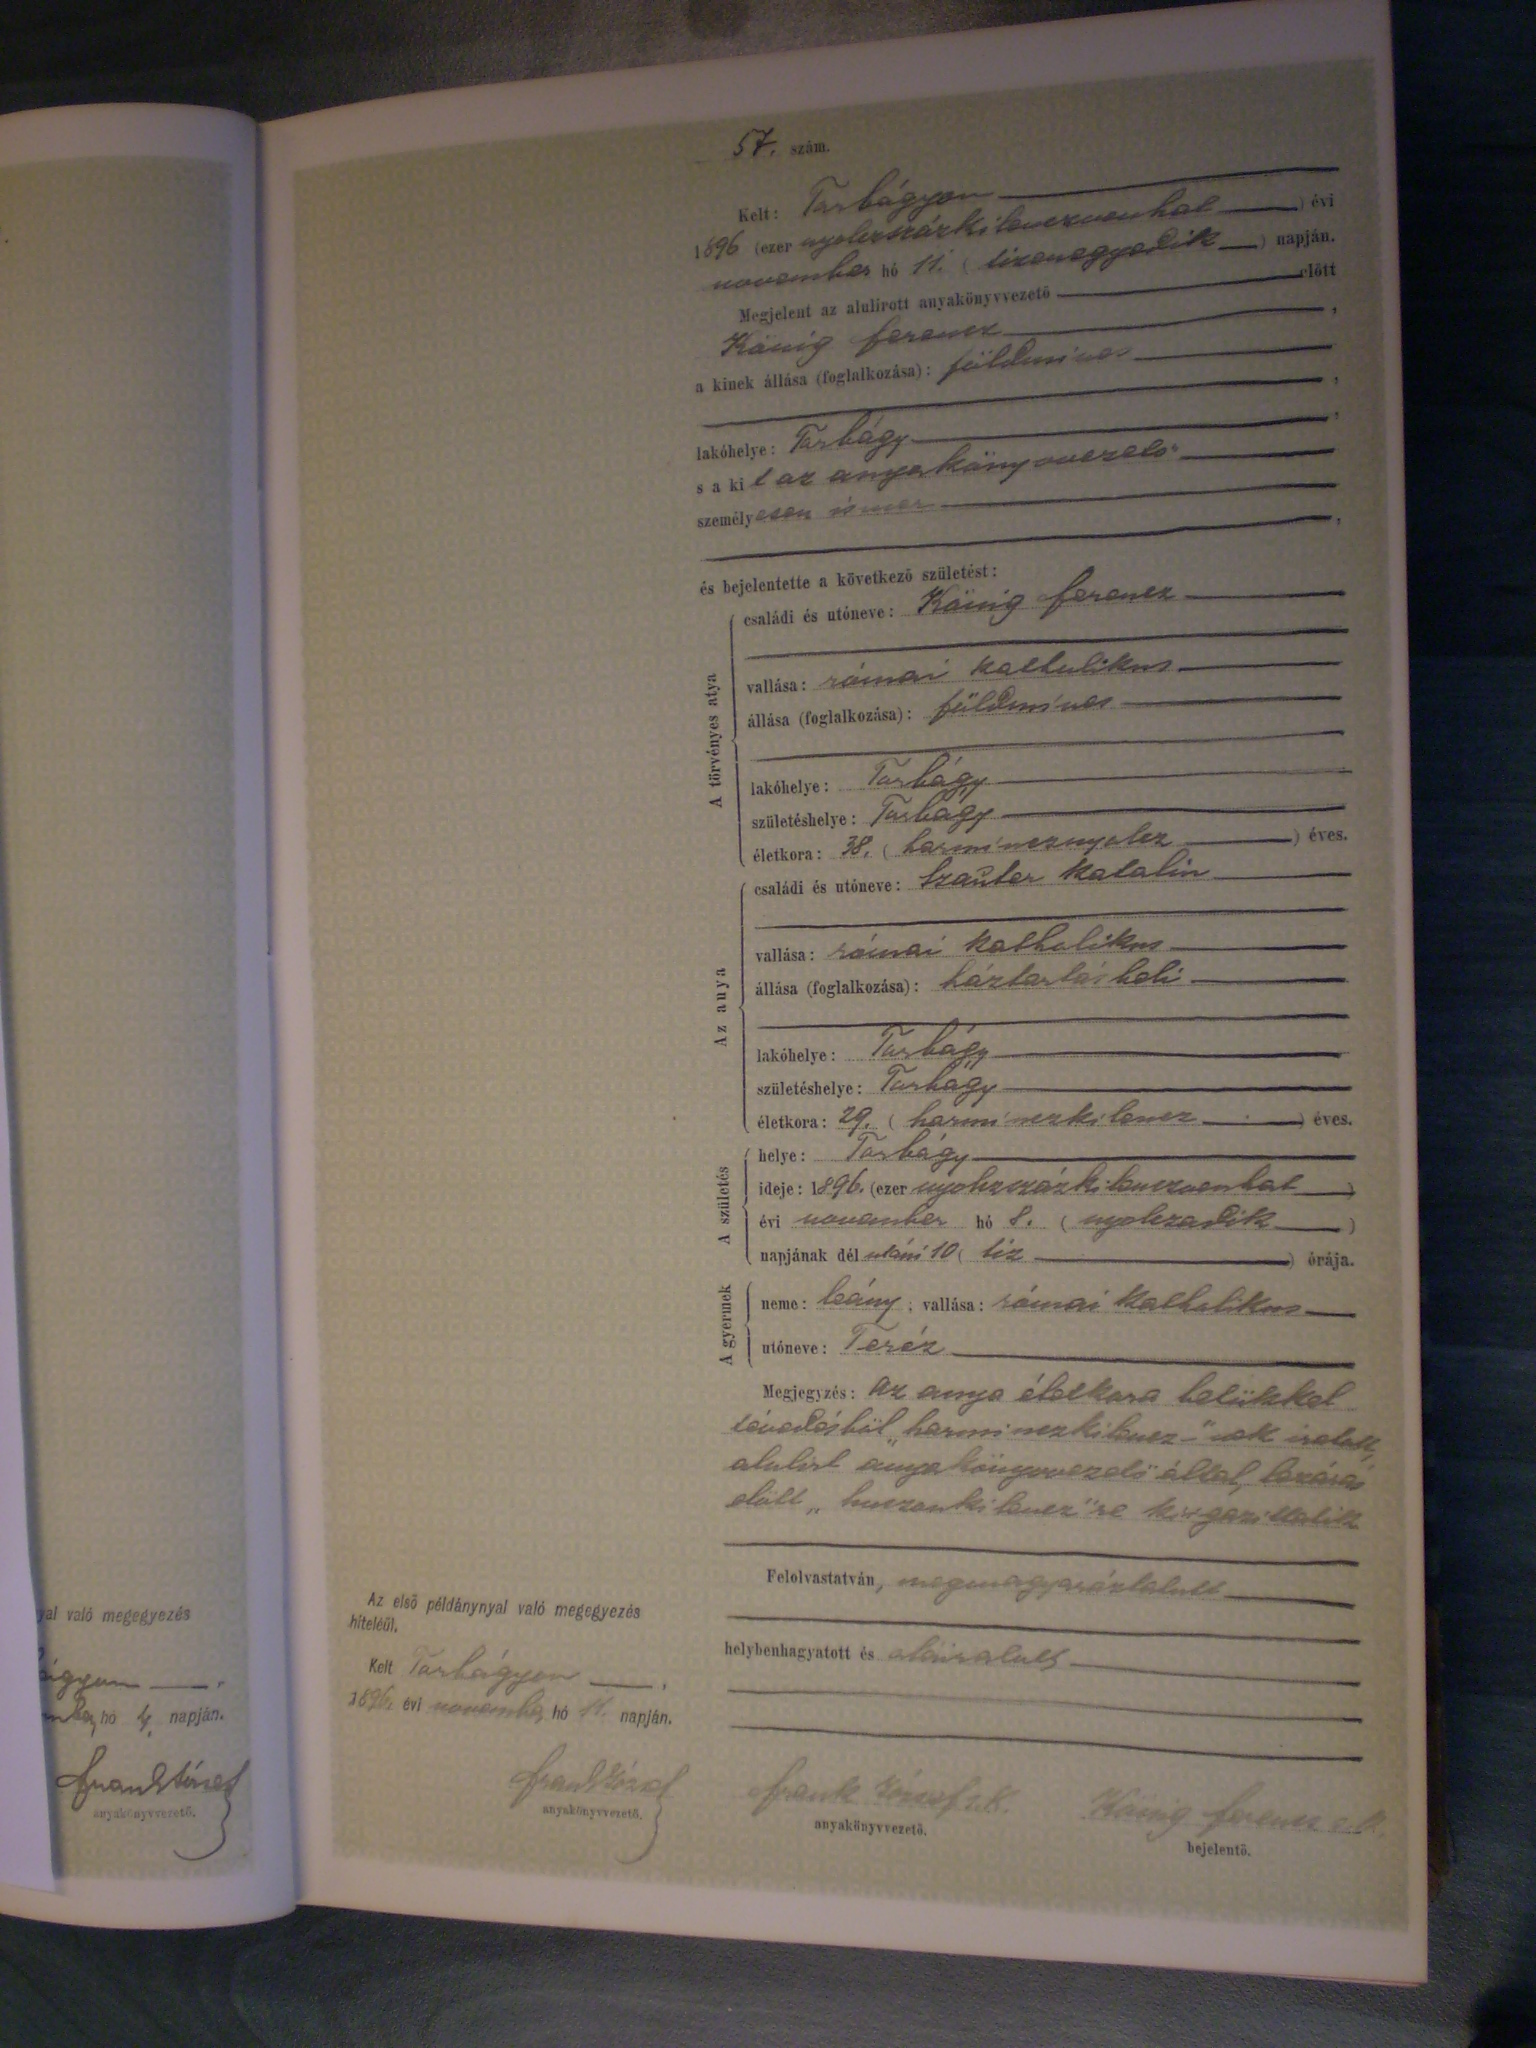 57. szám.
Kelt: Torbágyon
1896 (ezer nyolczszázkilenczvenhat ) évi
november hó 11. ( tizenegyedik ) napján.
Megjelent az alulirott anyakönyvvezető előtt
König Ferencz ,
a kinek állása (foglalkozása): földmíves
,
lakóhelye: Torbágy ,
s a kit az anyakönyvvezető
személyesen ismer
,
és bejelentette a következő születést:
A törvényes atya
családi és utóneve: König Ferencz
vallása: római katholikus
állása (foglalkozása): földmíves
lakóhelye: Torbágy
születéshelye: Torbágy
életkora: 38. ( harmincznyolcz ) éves.
Az anya
családi és utóneve: Szauter Katalin
vallása: római katholikus
állása (foglalkozása): háztartásbeli
lakóhelye: Torbágy
születéshelye: Torbágy
életkora: 29. ( harminczkilencz ) éves.
A születés
helye: Torbágy
ideje: 1896. (ezer nyolczszázkilenczvenhat )
évi november hó 8. ( nyolczadik )
napjának dél utáni 10 ( tiz ) órája.
A gyermek
neme: leány; vallása: római katholikus
utóneve: Teréz
Megjegyzés: Az anya életkora betükkel
tévedésböl „harminczkilencz-"nek iratott,
alulirt anyakönyvvezetö által, lezárás
elött „huszonkilencz"re kiigazittatik
Felolvastatván, megmagyaráztatott
helybenhagyatott és aláiratott
Az első példánynyal való megegyezés
hiteléül.
Kelt Torbágyon ,
1896. évi november hó 11. napján.
Frank József
anyakönyvvezető.
Frank József s.k.
anyakönyvvezető.
König Ferencz s.k.
bejelentő.
yal való megegyezés
ágyon ,
mber hó 4. napján.
Frank József
anyakönyvvezető.